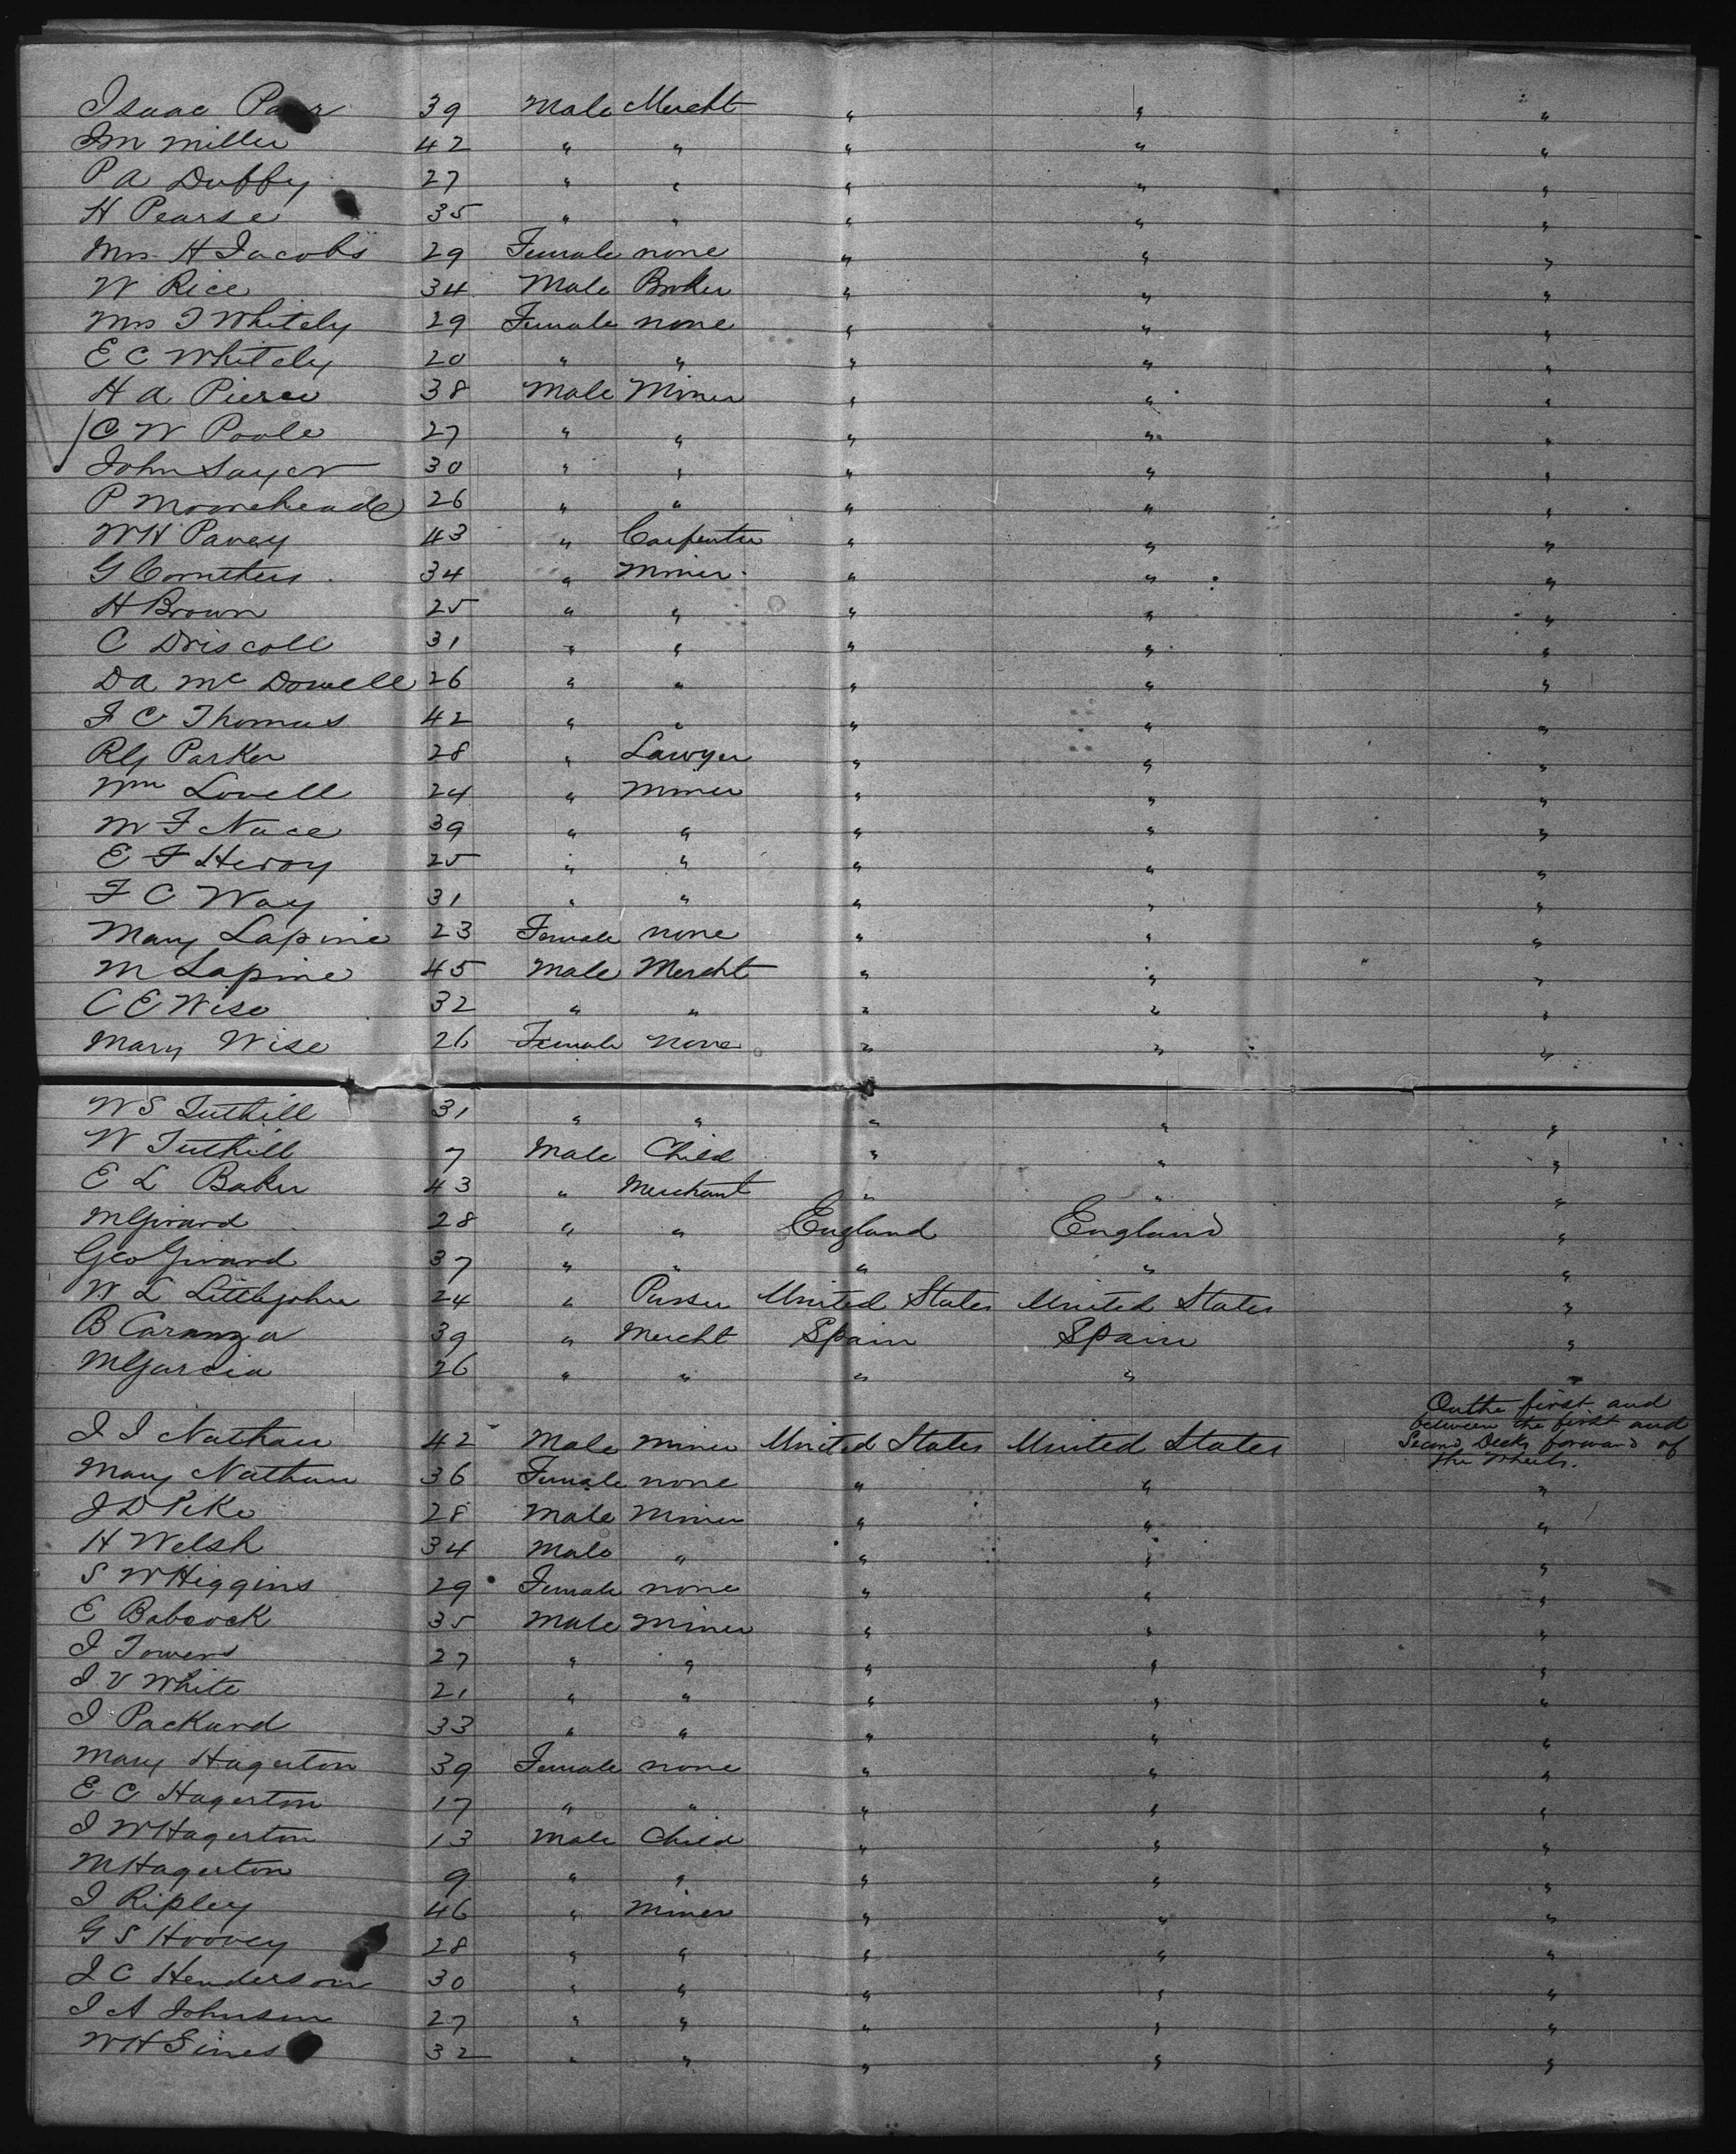 Isaac 39 Male Mercht " " "
Jm Miller 42 " " " " "
P A Duffy 27 " " " " "
H Pearse 35 " " " " "
Mrs H Jacobs 29 Female none " " "
W Rice 34 Male Broker " " "
Mrs T Whitely 29 Female none " " "
E C Whitely 20 " " " " "
H A Pierce 38 Male Miner " " "
C W Poole 27 " " " " "
John Sayer 30 " " " " "
P Moorehead 26 " " " " "
W H Pavey 43 " Carpenter " " "
G 34 " Miner " " "
H Brown 25 " " " " "
C Driscoll 31 " " " " "
D A Mc Dowell 26 " " " " "
J C Thomas 42 " " " " "
R G Parker 28 " Lawyer " " "
Wm Lovell 24 " Miner " " "
M F Nace 39 " " " " "
E F Heroy 25 " " " " "
F C Way 31 " " " " "
Mary Lapine 23 Female none " " "
M Lapine 45 Male Mercht " " "
C E Wise 32 " " " " "
Mary Wise 26 Female none " " "
W S Tuthill 31 " " " " "
W Tuthill 7 Male Child " " "
E L Baker 43 " Merchant " " "
M Girard 28 " " England England "
Geo Girard 37 " " " " "
W L Littlejohn 24 " Purser United States United States "
B Caranza 39 " Mercht Spain Spain "
M Garcia 26 " " " " "
On the first and
between the first and
Second Decks forward of
the Wheels.
J J Nathan 42 Male Miner United States United States
Mary Nathan 36 Female none " " "
J D Pike 28 Male Miner " " "
H Welsh 34 Male " " " "
S W Higgins 29 Female none " " "
E Babcock 35 Male Miner " " "
J Towers 27 " " " " "
J V White 21 " " " " "
J Packard 33 " " " " "
Mary Hagerton 39 Female none " " "
E C Hagerton 17 " " " " "
J W Hagerton 13 Male Child " " "
M Hagerton 9 " " " " "
J Ripley 46 " Miner " " "
G S Hoovey 28 " " " " "
J C Henderson 30 " " " " "
J A Johnson 27 " " " " "
W H Sines 32 " " " " "